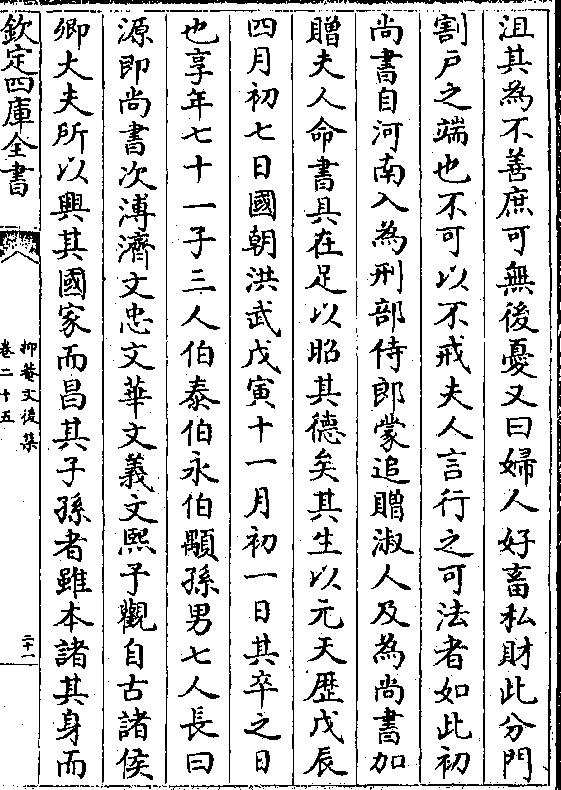 沮其為不善庶可無後憂又曰婦人好畜私財此分門
割戸之端也不可以不戒夫人言行之可法者如此初
尚書自河南入為刑部侍郎蒙追贈淑人及為尚書加
贈夫人命書具在足以昭其德矣其生以元天歴戊辰
四月初七日國朝洪武戊寅十一月初一日其卒之日
也享年七十一子三人伯泰伯永伯顒孫男七人長曰
源即尚書次溥濟文忠文華文義文熙子觀自古諸侯
卿大夫所以興其國家而昌其子孫者雖本諸其身而
欽定四庫全書
抑菴文後集
卷二十五
三十一